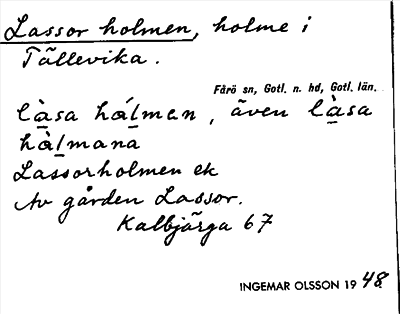 Lassor holmen, holme i
Tällevika.
Fårö sn, Gotl. n. hd, Gotl. län.
là̱sa há̱ḻmen, även là̱sa
hà̱ḻmana
Lassorholmen ek
Av gården Lassor.
Kalbjärga 67
INGEMAR OLSSON 1948